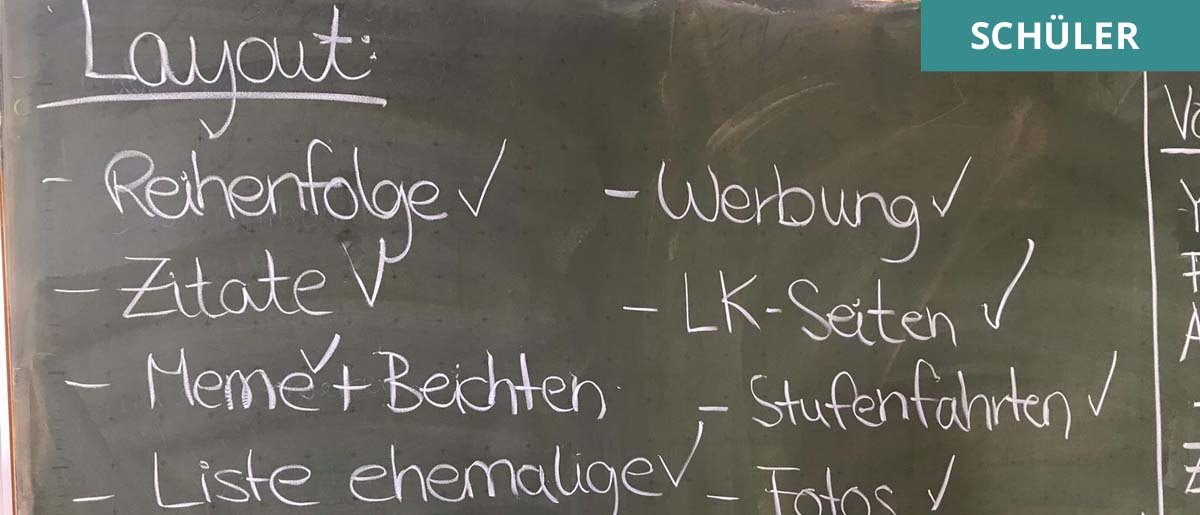 SCHÜLER
Layout:
- Reihenfolge ✓
- Zitate ✓
- Meme ✓ + Beichten
- Liste ehemalige ✓
- Werbung ✓
- LK-Seiten ✓
- Stufenfahrten ✓
- Fotos ✓